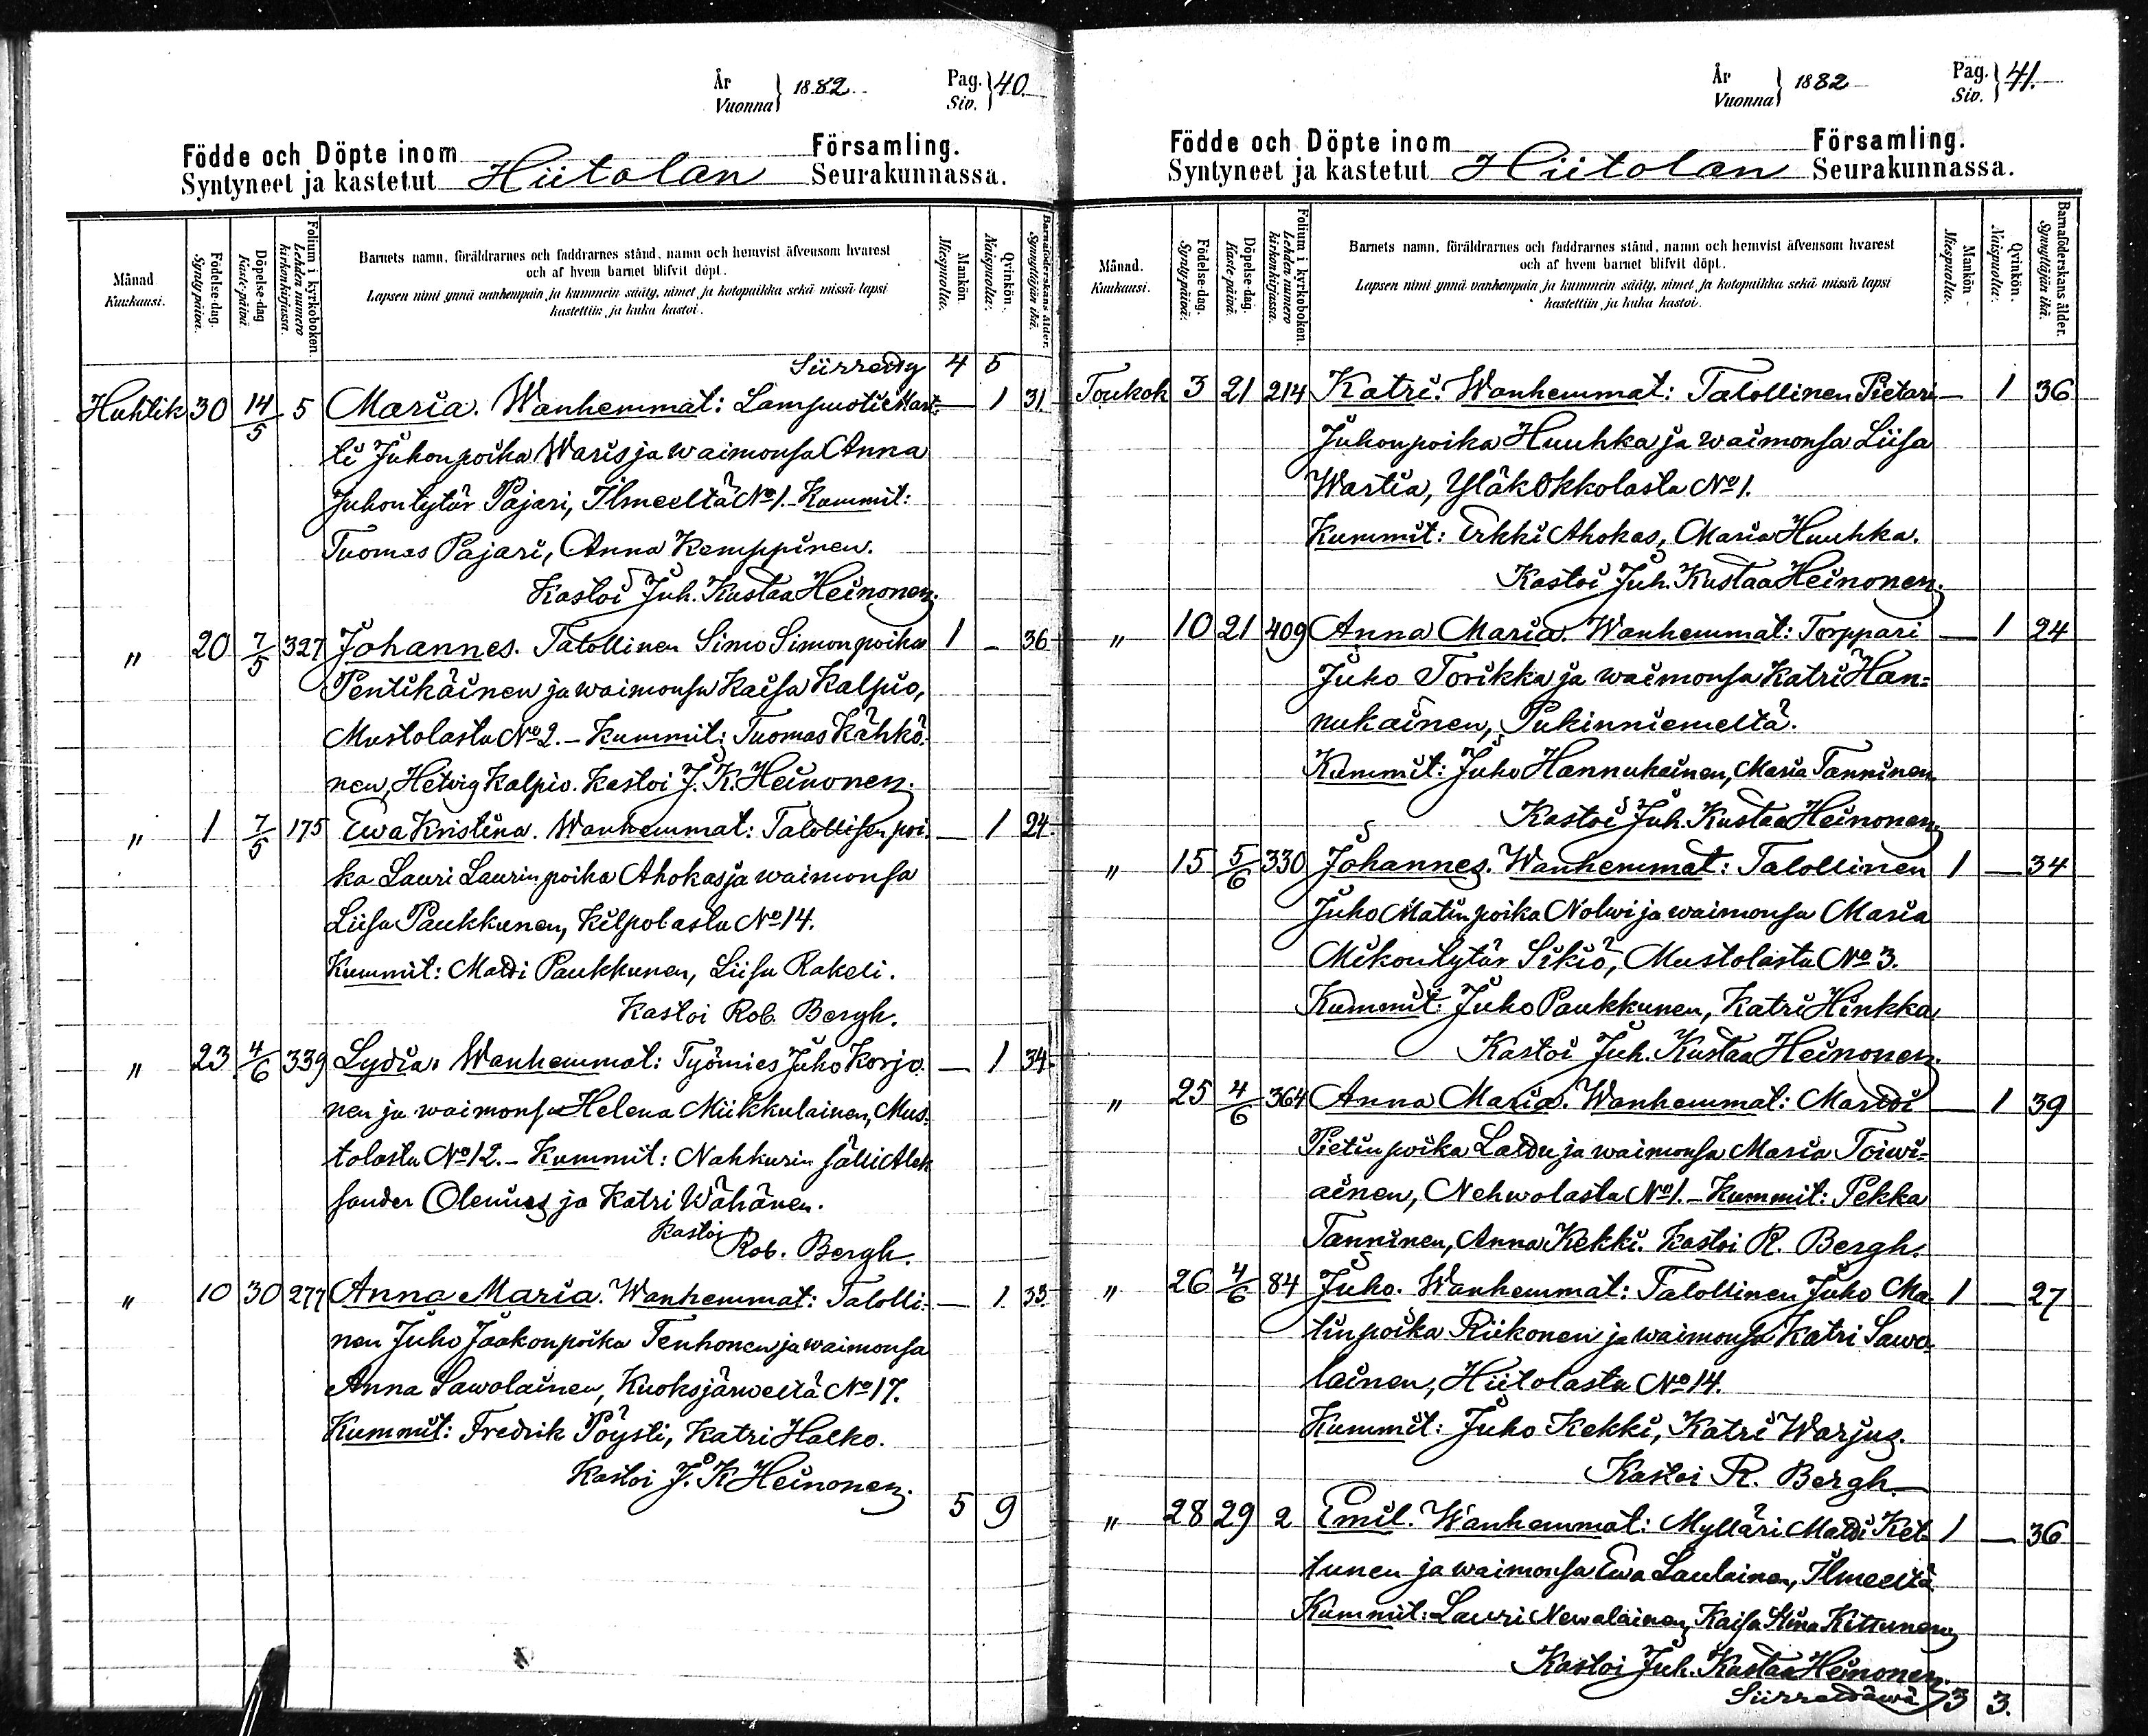 År
Vuonna } 1882 Pag.
Siv. } 40.
Födde och Döpte inom Församling.
Syntyneet ja kastetut Hiitolan Seurakunnassa.
Månad. Kuukausi.
Födelse-dag. Synty-päivä.
Döpelse-dag. Kaste-päivä.
Folium i kyrkoboken. Lehden numero kirkonkirjassa.
Barnets namn, föräldrarnes och faddrarnes stånd, namn och hemvist äfvensom hvarest
och af hvem barnet blifvit döpt.
Lapsen nimi ynnä vanhempain ja kummein sääty, nimet ja kotopaikka sekä missä lapsi
kastettiin ja kuka kastoi.
Mankön. Miespuolta.
Qvinkön. Naispuolta.
Barnaföderskans ålder. Synnyttäjän ikä.
Siirretty 4 5
Huhtik 30 14/5 5 Maria. Wanhemmat: Lampuoti Mart- — 1 31
ti Juhonpoika Waris ja waimonsa Anna
Juhontytär Pajari, Ilmeeltä No 1. Kummit:
Tuomas Pajari, Anna Kemppinen.
Kastoi Juh. Kustaa Heinonen.
" 20 7/5 327 Johannes. Talollinen Simo Simonpoika 1 – 36
Pentikäinen ja waimonsa Kaisa Kalpio,
Mustolasta No 2. – Kummit: Tuomas Kähkö-
nen, Hetvig Kalpio. Kastoi J. K. Heinonen.
" 1 7/5 175 Ewa Kristina. Wanhemmat: Talollisen poi- — 1 24
ka Lauri Laurinpoika Ahokas ja waimonsa
Liisa Paukkunen, Kilpolasta No 14.
Kummit: Matti Paukkunen, Liisa Rakeli.
Kastoi Rob. Bergh.
" 23 4/6 339 Lydia. Wanhemmat: Työmies Juho Korjo- — 1 34
nen ja waimonsa Helena Miikkulainen, Mus-
tolasta No 12. – Kummit: Nahkurin sälli Alek
sander Olenius ja Katri Wähänen.
Kastoi Rob. Bergh.
" 10 30 277 Anna Maria. Wanhemmat: Talolli- — 1 33
nen Juho Jaakonpoika Tenhonen ja waimonsa
Anna Sawolainen, Kuoksjärweltä No 17.
Kummit: Fredrik Pöysti, Katri Halko.
Kastoi J. K. Heinonen.
5 9
År
Vuonna } 1882 Pag.
Siv. } 41.
Födde och Döpte inom Församling.
Syntyneet ja kastetut Hiitolan Seurakunnassa.
Månad. Kuukausi.
Födelse-dag. Synty-päivä.
Döpelse-dag. Kaste-päivä.
Folium i kyrkoboken. Lehden numero kirkonkirjassa.
Barnets namn, föräldrarnes och faddrarnes stånd, namn och hemvist äfvensom hvarest
och af hvem barnet blifvit döpt.
Lapsen nimi ynnä vanhempain ja kummein sääty, nimet ja kotopaikka sekä missä lapsi
kastettiin ja kuka kastoi.
Mankön Miespuolta.
Qvinkön. Naispuolta.
Barnaföderskans ålder. Synnyttäjän ikä.
Toukok 3 21 214 Katri. Wanhemmat: Talollinen Pietari — 1 36
Juhonpoika Huuhka ja waimonsa Liisa
Wartia, Yläkokkolasta No 1.
Kummit: Erkki Ahokas, Maria Huuhka.
Kastoi Juh. Kustaa Heinonen.
" 10 21 409 Anna Maria. Wanhemmat: Torppari — 1 24
Juho Torikka ja waimonsa Katri Han=
nukainen, Pukinniemeltä.
Kummit: Juho Hannukainen, Maria Tanninen.
Kastoi Juh. Kustaa Heinonen.
" 15 5/6 330 Johannes. Wanhemmat: Talollinen 1 — 34
Juho Matinpoika Nolwi ja waimonsa Maria
Mikontytär Sikiö, Mustolasta No 3.
Kummit: Juho Paukkunen, Katri Hinkka
Kastoi Juh. Kustaa Heinonen.
" 25 4/6 364 Anna Maria. Wanhemmat: Martti — 1 39
Pietinpoika Lattu ja waimonsa Maria Toiwi=
ainen, Nehwolasta No 1. – Kummit: Pekka
Tanninen, Anna Kekki. Kastoi R. Bergh.
" 26 4/6 84 Juho. Wanhemmat: Talollinen Juho Ma- 1 — 27
tinpoika Riikonen ja waimonsa Katri Sawo-
lainen, Hiitolasta No 14.
Kummit: Juho Kekki, Katri Warjus.
Kastoi R. Bergh.
" 28 29 2 Emil. Wanhemmat: Mylläri Matti Ket- 1 — 36
tunen ja waimonsa Ewa Laulainen, Ilmeeltä
Kummit: Lauri Newalainen, Kaisa Stina Kettunen
Kastoi Juh. Kustaa Heinonen.
Siirrettäwä 3 3.